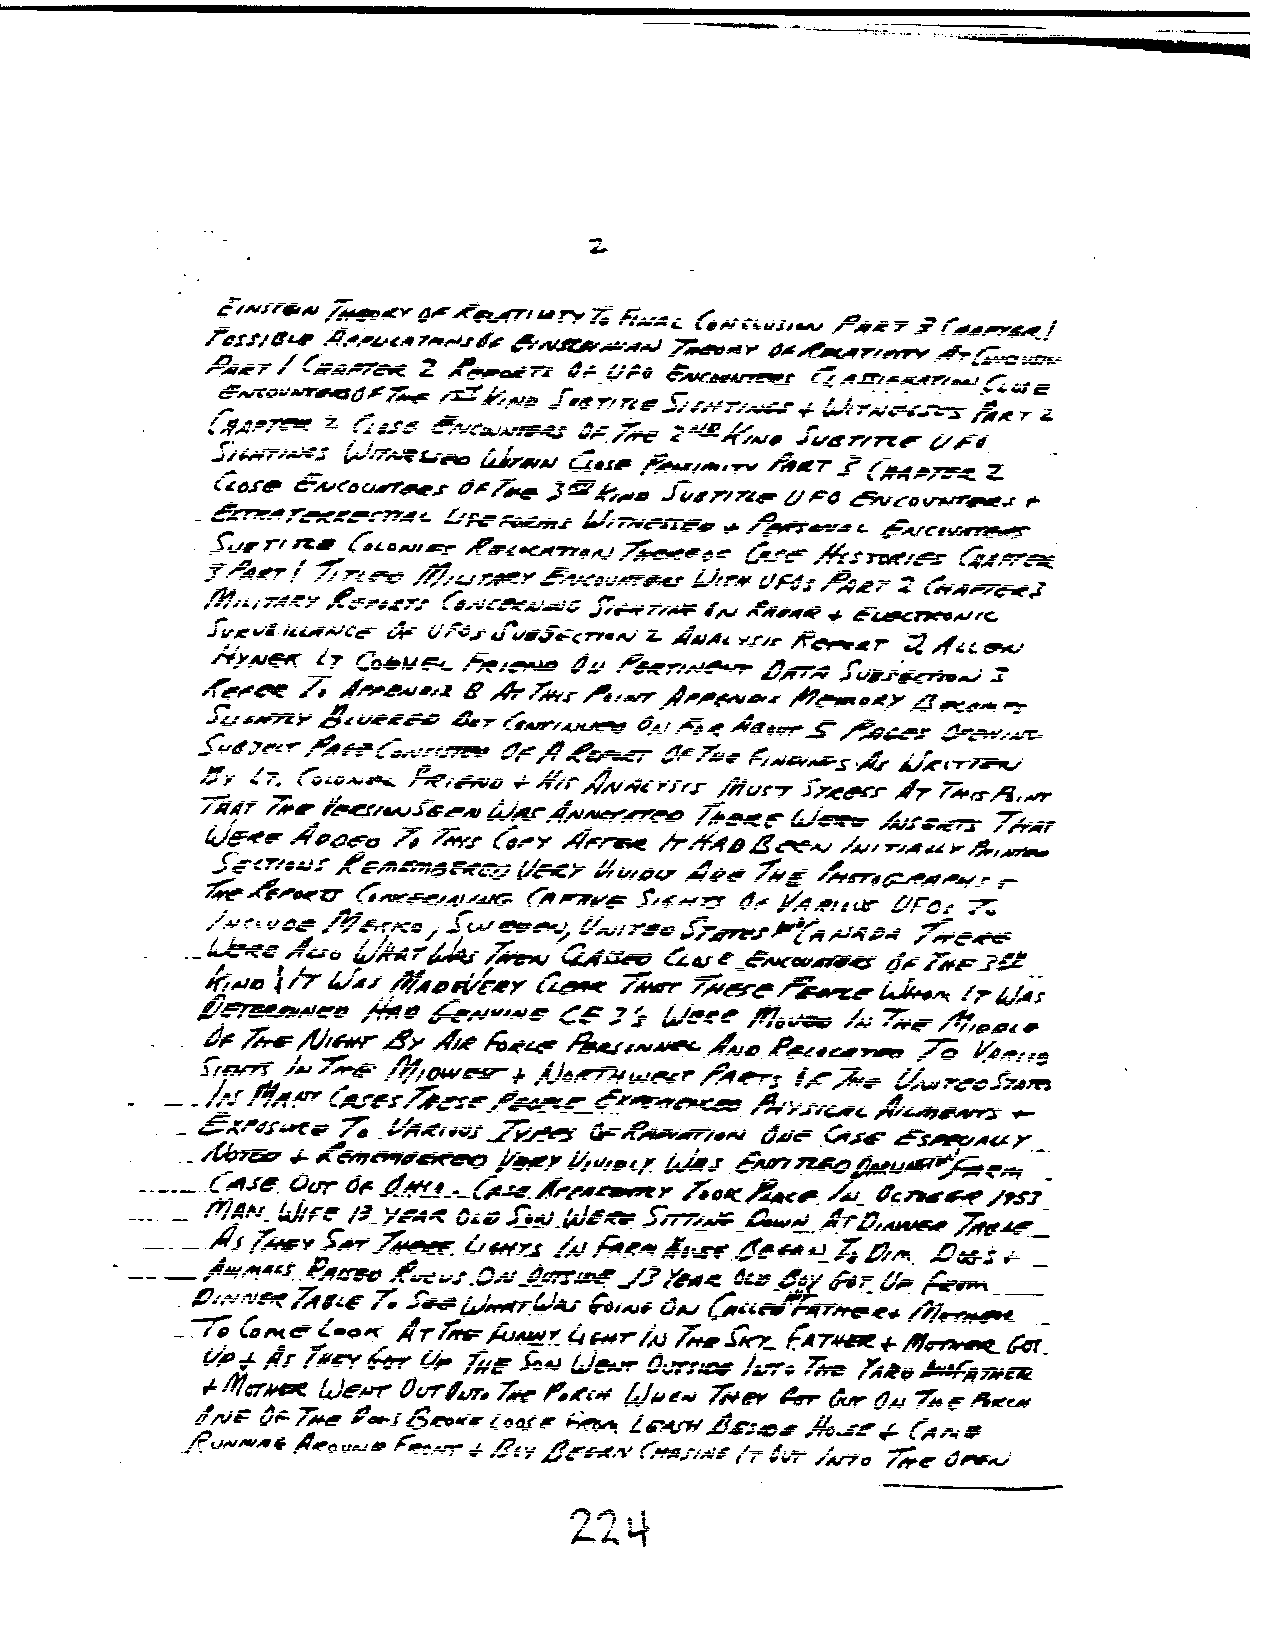 2
EINSTEIN THEORY OF RELATIVITY TO FINAL CONCLUSION PART 3 CHAPTER 1
POSSIBLE APPLICATIONS OF EINSTEINIAN THEORY OF RELATIVITY AT CONCLUSION
PART 1 CHAPTER 2 REPORTS OF UFO ENCOUNTERS CLASSIFICATION CLOSE
ENCOUNTERS OF THE 1ST KIND SUBTITLE SIGHTINGS + WITNESSES PART 2
CHAPTER 2 CLOSE ENCOUNTERS OF THE 2ND KIND SUBTITLE UFO
SIGHTINGS WITNESSED WITHIN CLOSE PROXIMITY PART 3 CHAPTER 2
CLOSE ENCOUNTERS OF THE 3RD KIND SUBTITLE UFO ENCOUNTERS +
EXTRATERRESTRIAL LIFE FORMS WITNESSED + PERSONAL ENCOUNTERS
SUBTITLE COLONIES RELOCATION THEREOF CASE HISTORIES CHAPTER
3 PART 1 TITLED MILITARY ENCOUNTERS WITH UFOS PART 2 CHAPTER 3
MILITARY REPORTS CONCERNING SIGHTING ON RADAR + ELECTRONIC
SURVEILLANCE OF UFOS SUBSECTION 2 ANALYSIS REPORT J ALLEN
HYNEK LT COLONEL FRIEND ON PERTINENT DATA SUBSECTION 3
REFER TO APPENDIX B AT THIS POINT APPENDIX MEMORY
SLIGHTLY BLURRED BUT CONTINUED ON FOR ABOUT 5 PAGES OPENING
SUBJECT PAGE CONSISTED OF A REPORT OF THE FINDINGS AS WRITTEN
BY LT. COLONEL FRIEND + HIS ANALYSIS MUST STRESS AT THIS POINT
THAT THE VERSION SEEN WAS ANNOTATED THERE WERE INSERTS THAT
WERE ADDED TO THIS COPY AFTER IT HAD BEEN INITIALLY PRINTED
SECTIONS REMEMBERED VERY VIVIDLY ARE THE PHOTOGRAPHS +
THE REPORTS CONCERNING CAPTIVE SIGHTS OF VARIOUS UFOS TO
INCLUDE MEXICO, SWEDEN, UNITED STATES CANADA THERE
WERE ALSO WHAT WAS THEN CLASSED CLOSE ENCOUNTERS OF THE 3RD
KIND IT WAS MADE VERY CLEAR THAT THESE PEOPLE WHOM IT WAS
DETERMINED HAD GENUINE CE 3'S WERE MOVED IN THE MIDDLE
OF THE NIGHT BY AIR FORCE PERSONNEL AND RELOCATED TO VARIOUS
SIGHTS IN THE MIDWEST + NORTHWEST PARTS OF THE UNITED STATES
IN MANY CASES THESE PEOPLE EXPERIENCED PHYSICAL AILMENTS +
EXPOSURE TO VARIOUS TYPES OF RADIATION ONE CASE ESPECIALLY
NOTED + REMEMBERED VERY VIVIDLY WAS ENTITLED FARM
CASE OUT OF CASE APPARENTLY TOOK PLACE IN OCTOBER 1953
MAN WIFE 13 YEAR OLD SON WERE SITTING DOWN AT DINNER TABLE
AS THEY SAT THERE LIGHTS IN FARM HOUSE BEGAN TO DIM DOGS +
ANIMALS RAISED RUCUS ON OUTSIDE 13 YEAR OLD BOY GOT UP FROM
DINNER TABLE TO SEE WHAT WAS GOING ON CALLED FATHER + MOTHER
TO COME LOOK AT THE FUNNY LIGHT IN THE SKY FATHER + MOTHER GOT
UP + AS THEY GOT UP THE SON WENT OUTSIDE INTO THE YARD FATHER
+ MOTHER WENT OUT THE PORCH WHEN THEY GOT OUT ON THE PORCH
ONE OF THE DOGS BROKE LOOSE FROM LEASH BESIDE HOUSE + CAME
RUNNING AROUND FRONT + BOY BEGAN CHASING IT OUT INTO THE OPEN
224